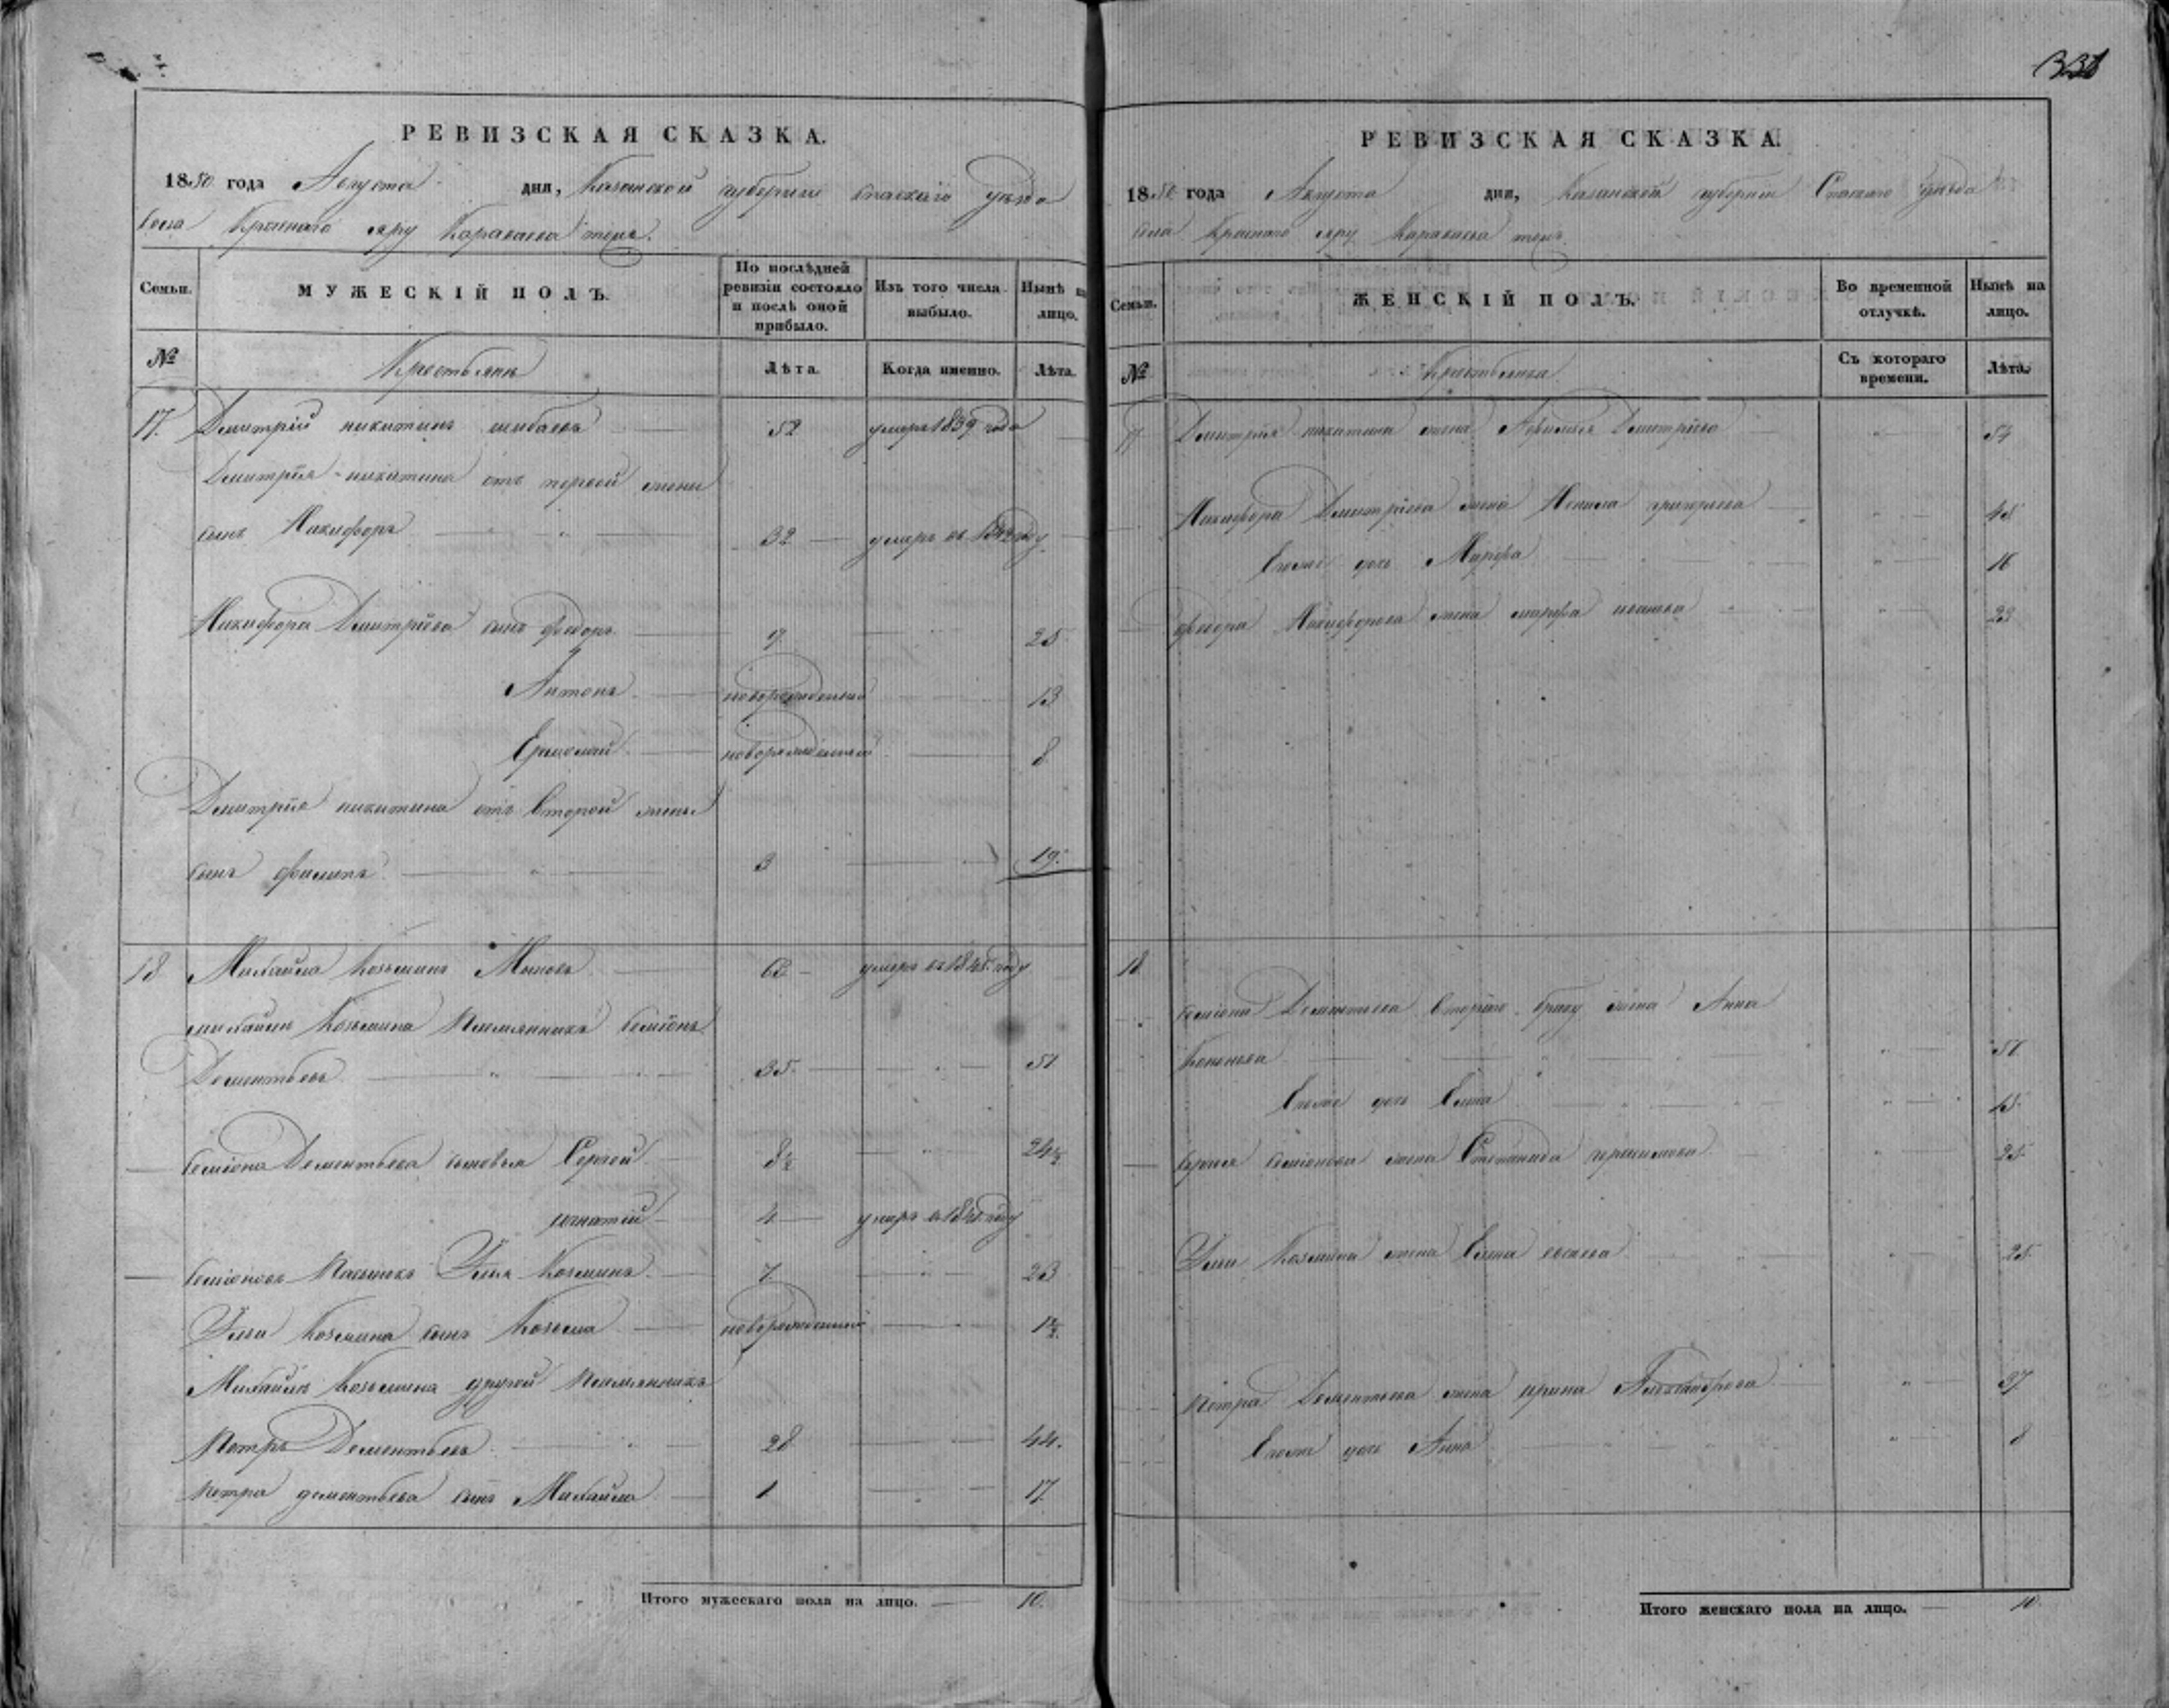 331
РЕВИЗСКАЯ СКАЗКА.
1850 года Августа дня, Казанской губернии Спаскаго уѣзда
села Краснаго яру Караваева тожъ.
Семьи.
МУЖЕСКІЙ ПОЛЪ.
По послѣдней ревизіи состояло и послѣ оной прибыло.
Изъ того числа выбыло.
Нынѣ на лицо.
№
Крестьяне
Лѣта.
Когда именно.
Лѣта.
17. Дмитрій никитинъ шибаевъ 52 умеръ 1839 года
Дмитрія никитина отъ первой жены
сынъ Никифоръ 32 умеръ въ 1842 году
Никифора Дмитріева сынъ федоръ 9 25
Антонъ новорожденный 13
Ермолай новорожденный 8
Дмитрія никитина отъ второй жены
сынъ филипъ 3 19
18 Михайла козьминъ 62 умеръ въ 1845 году
михайлы козьмина племянникъ семіонъ
Дементьевъ 35 51
семіона Дементьева сыновья Сергей 8½ 24½
игнатій 4 умеръ въ году
семіоновъ пасынокъ Илья козминъ 7 23
Ильи козмина сынъ козьма новорожденный 1½
Михайлы козьмина другой племянникъ
петръ Дементьевъ 28 44.
петра дементьева сынъ Михайла 1 17
Итого мужескаго пола на лицо. 10.
РЕВИЗСКАЯ СКАЗКА.
1850 года Августа дня, Казанской губернии Спаскаго уѣзда
села Краснаго яру Караваева тожъ
Семьи.
ЖЕНСКІЙ ПОЛЪ.
Во временной отлучкѣ.
Нынѣ на лицо.
№
Крестьянки
Съ котораго времени.
Лѣта.
17 Дмитрія никитина жена Дмитріева 54
Никифора Дмитріева жена Ненила григорьева 45
Егоже дочь Марфа 16
федора Никифорова жена марфа 29
18
семіона Дементьева втораго браку жена Анна
кононова 51
Егоже дочь Елена 15
сергея семіонова жена Степанида герасимова 25
Ильи козмина жена Елена 25
петра Дементьева жена ирина Александрова 37
Егоже дочь Анна 8
Итого женскаго пола на лицо. 10.